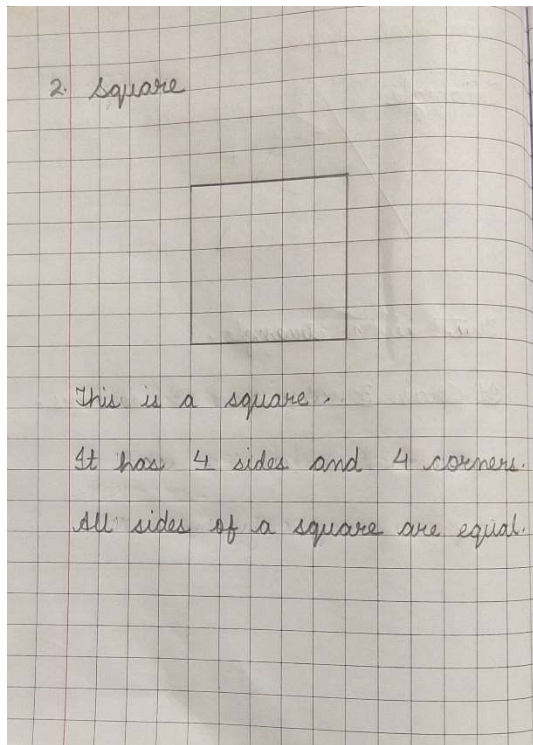 2. Square
This is a square.
It has 4 sides and 4 corners.
All sides of a square are equal.